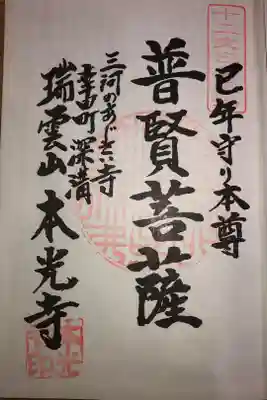 巳年守り本尊
普賢菩薩
三河のあじさい寺
幸田町深溝
瑞雲山本光寺